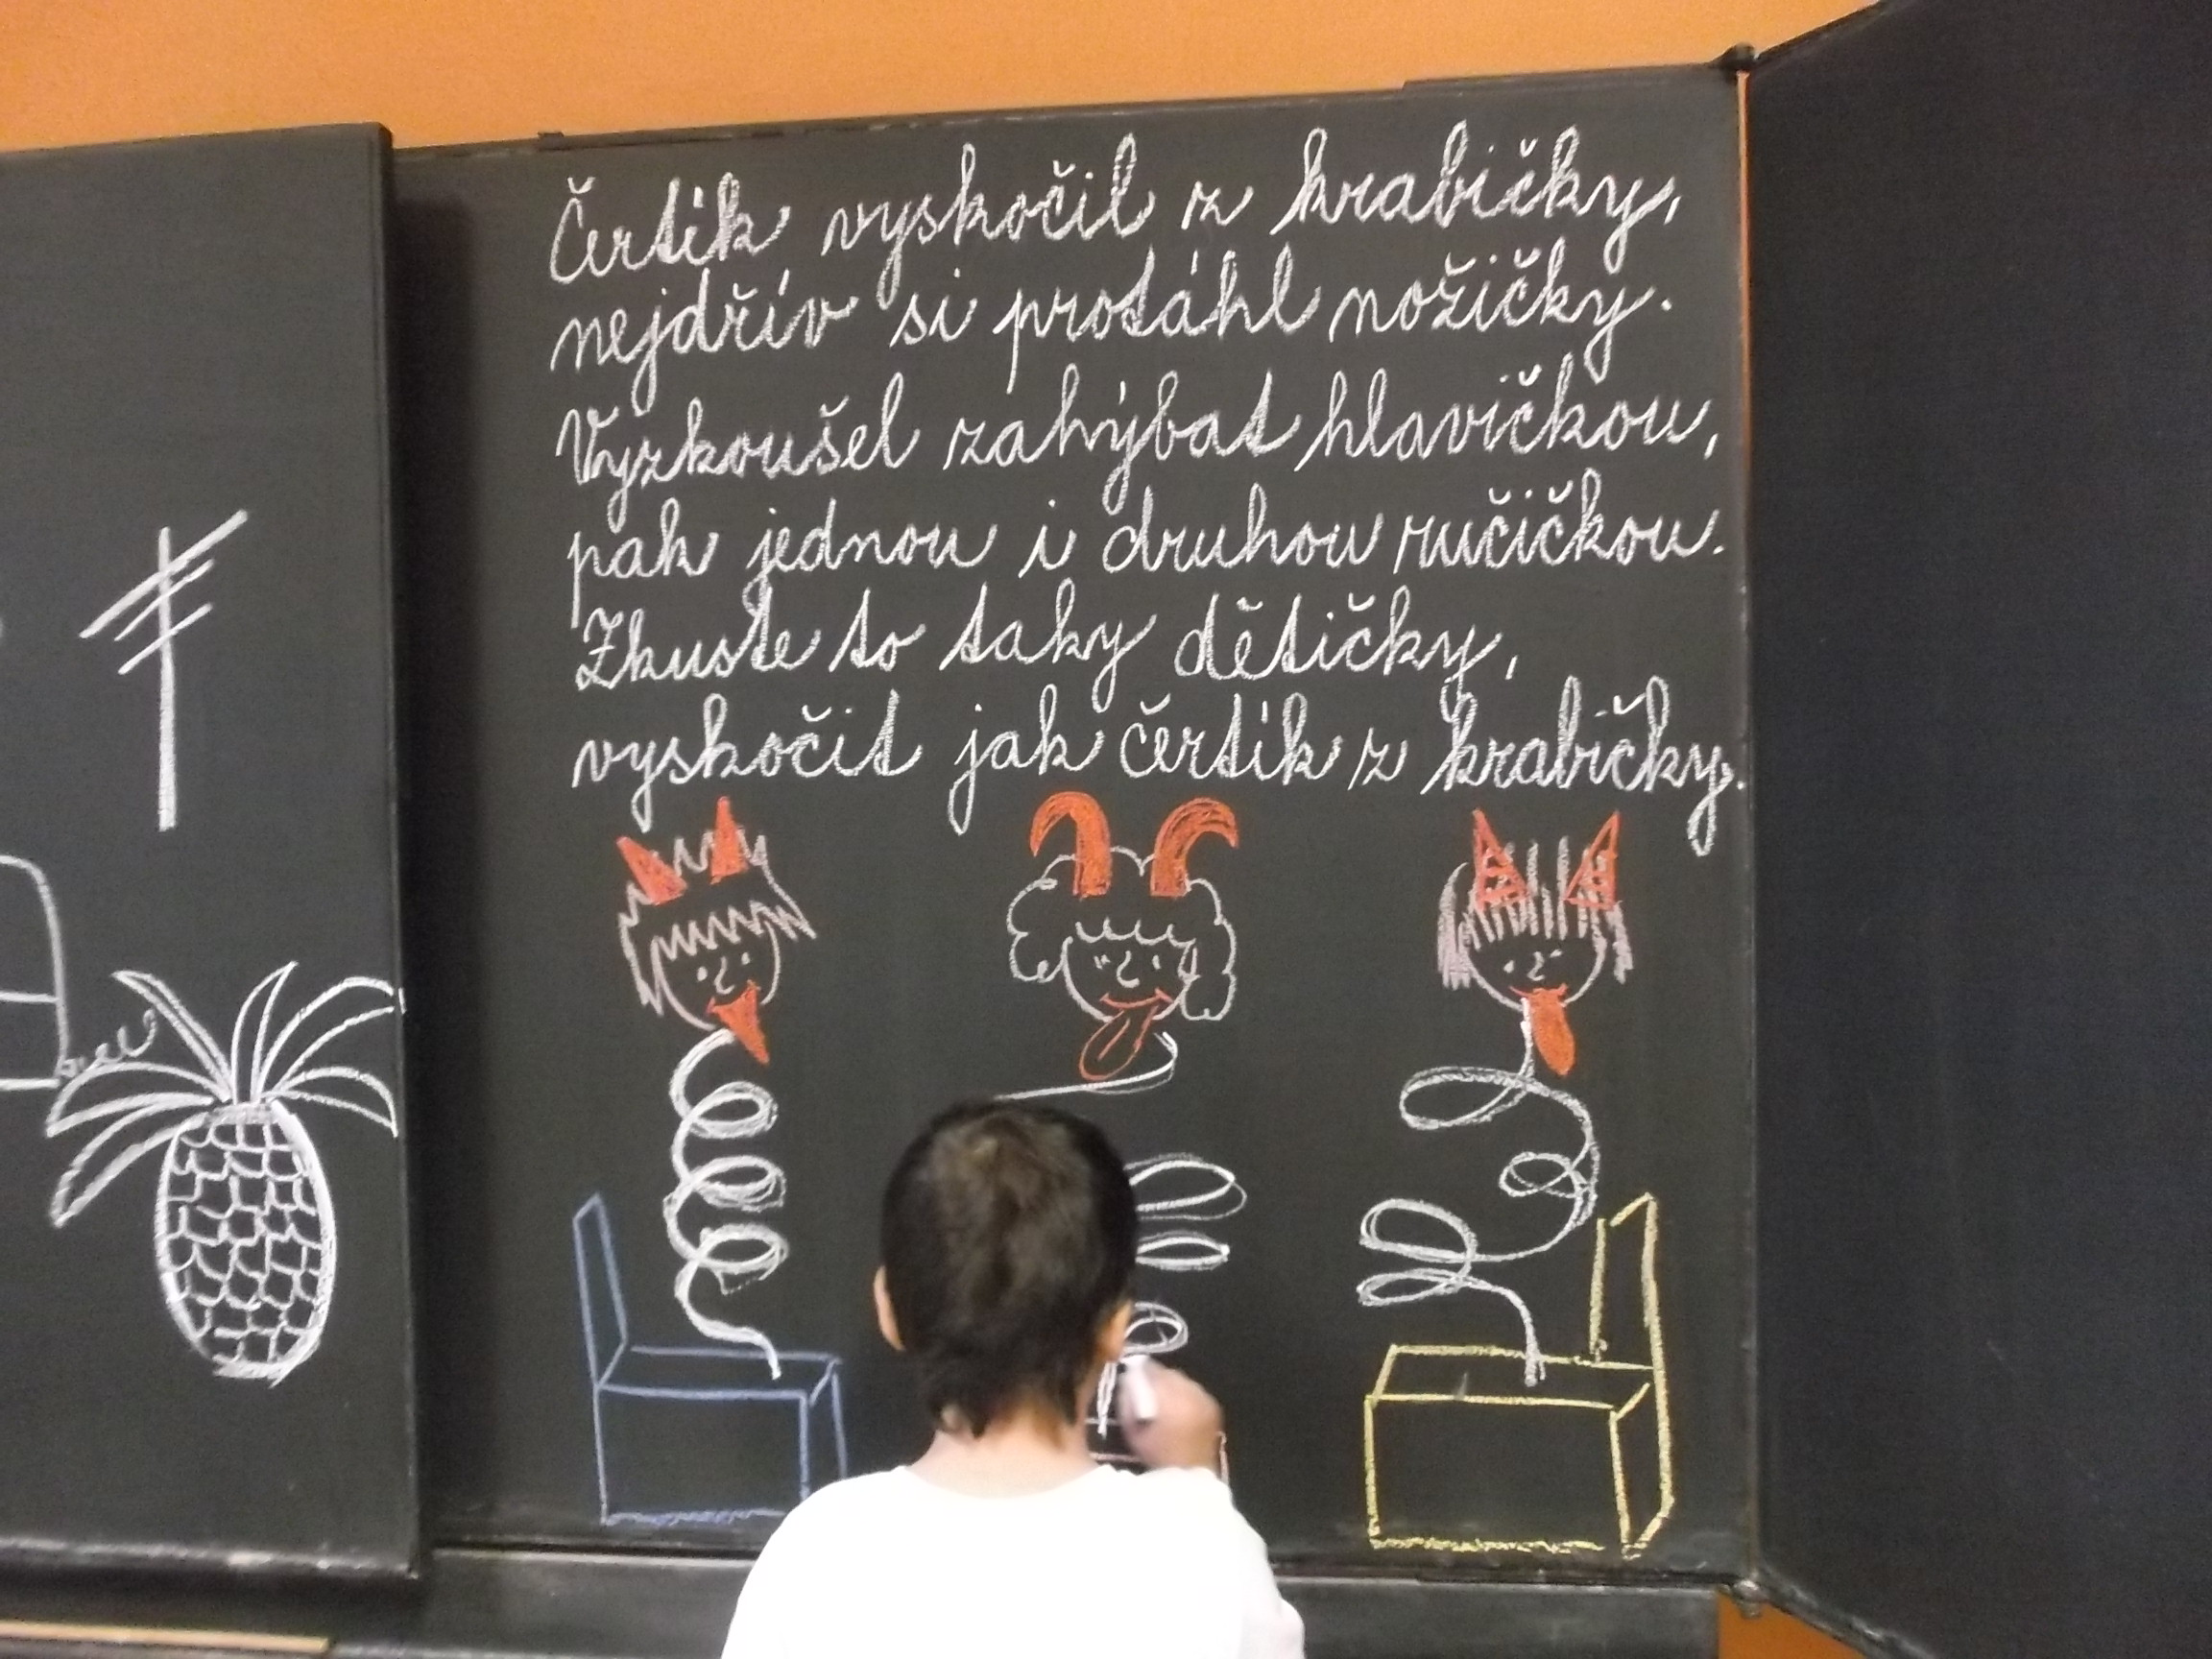 Čertík vyskočil z krabičky,
nejdřív si protáhl nožičky.
Vyzkoušel zahýbat hlavičkou,
pak jednou i druhou ručičkou.
Zkuste to taky dětičky,
vyskočit jak čertík z krabičky.